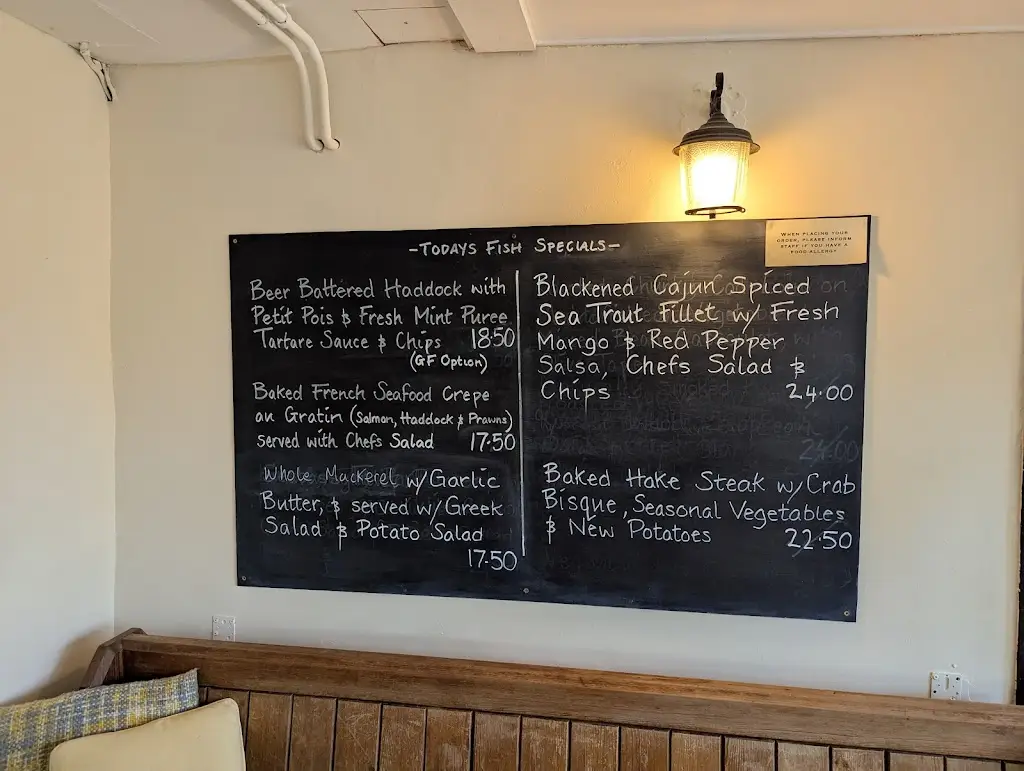 -TODAYS FISH SPECIALS-
WHEN PLACING YOUR
ORDER, PLEASE INFORM
STAFF IF YOU HAVE A
FOOD ALLERGY
Beer Battered Haddock with
Petit Pois & Fresh Mint Puree
Tartare Sauce & Chips 18.50
(GF Option)
Baked French Seafood Crepe
au Gratin (Salmon, Haddock & Prawns)
served with Chefs Salad 17.50
Whole Mackerel w/Garlic
Butter, & served w/Greek
Salad & Potato Salad
17.50
Blackened Cajun Spiced
Sea Trout Fillet w/ Fresh
Mango & Red Pepper
Salsa, Chefs Salad &
Chips 24.00
24.00
Baked Hake Steak w/Crab
Bisque, Seasonal Vegetables
& New Potatoes 22.50